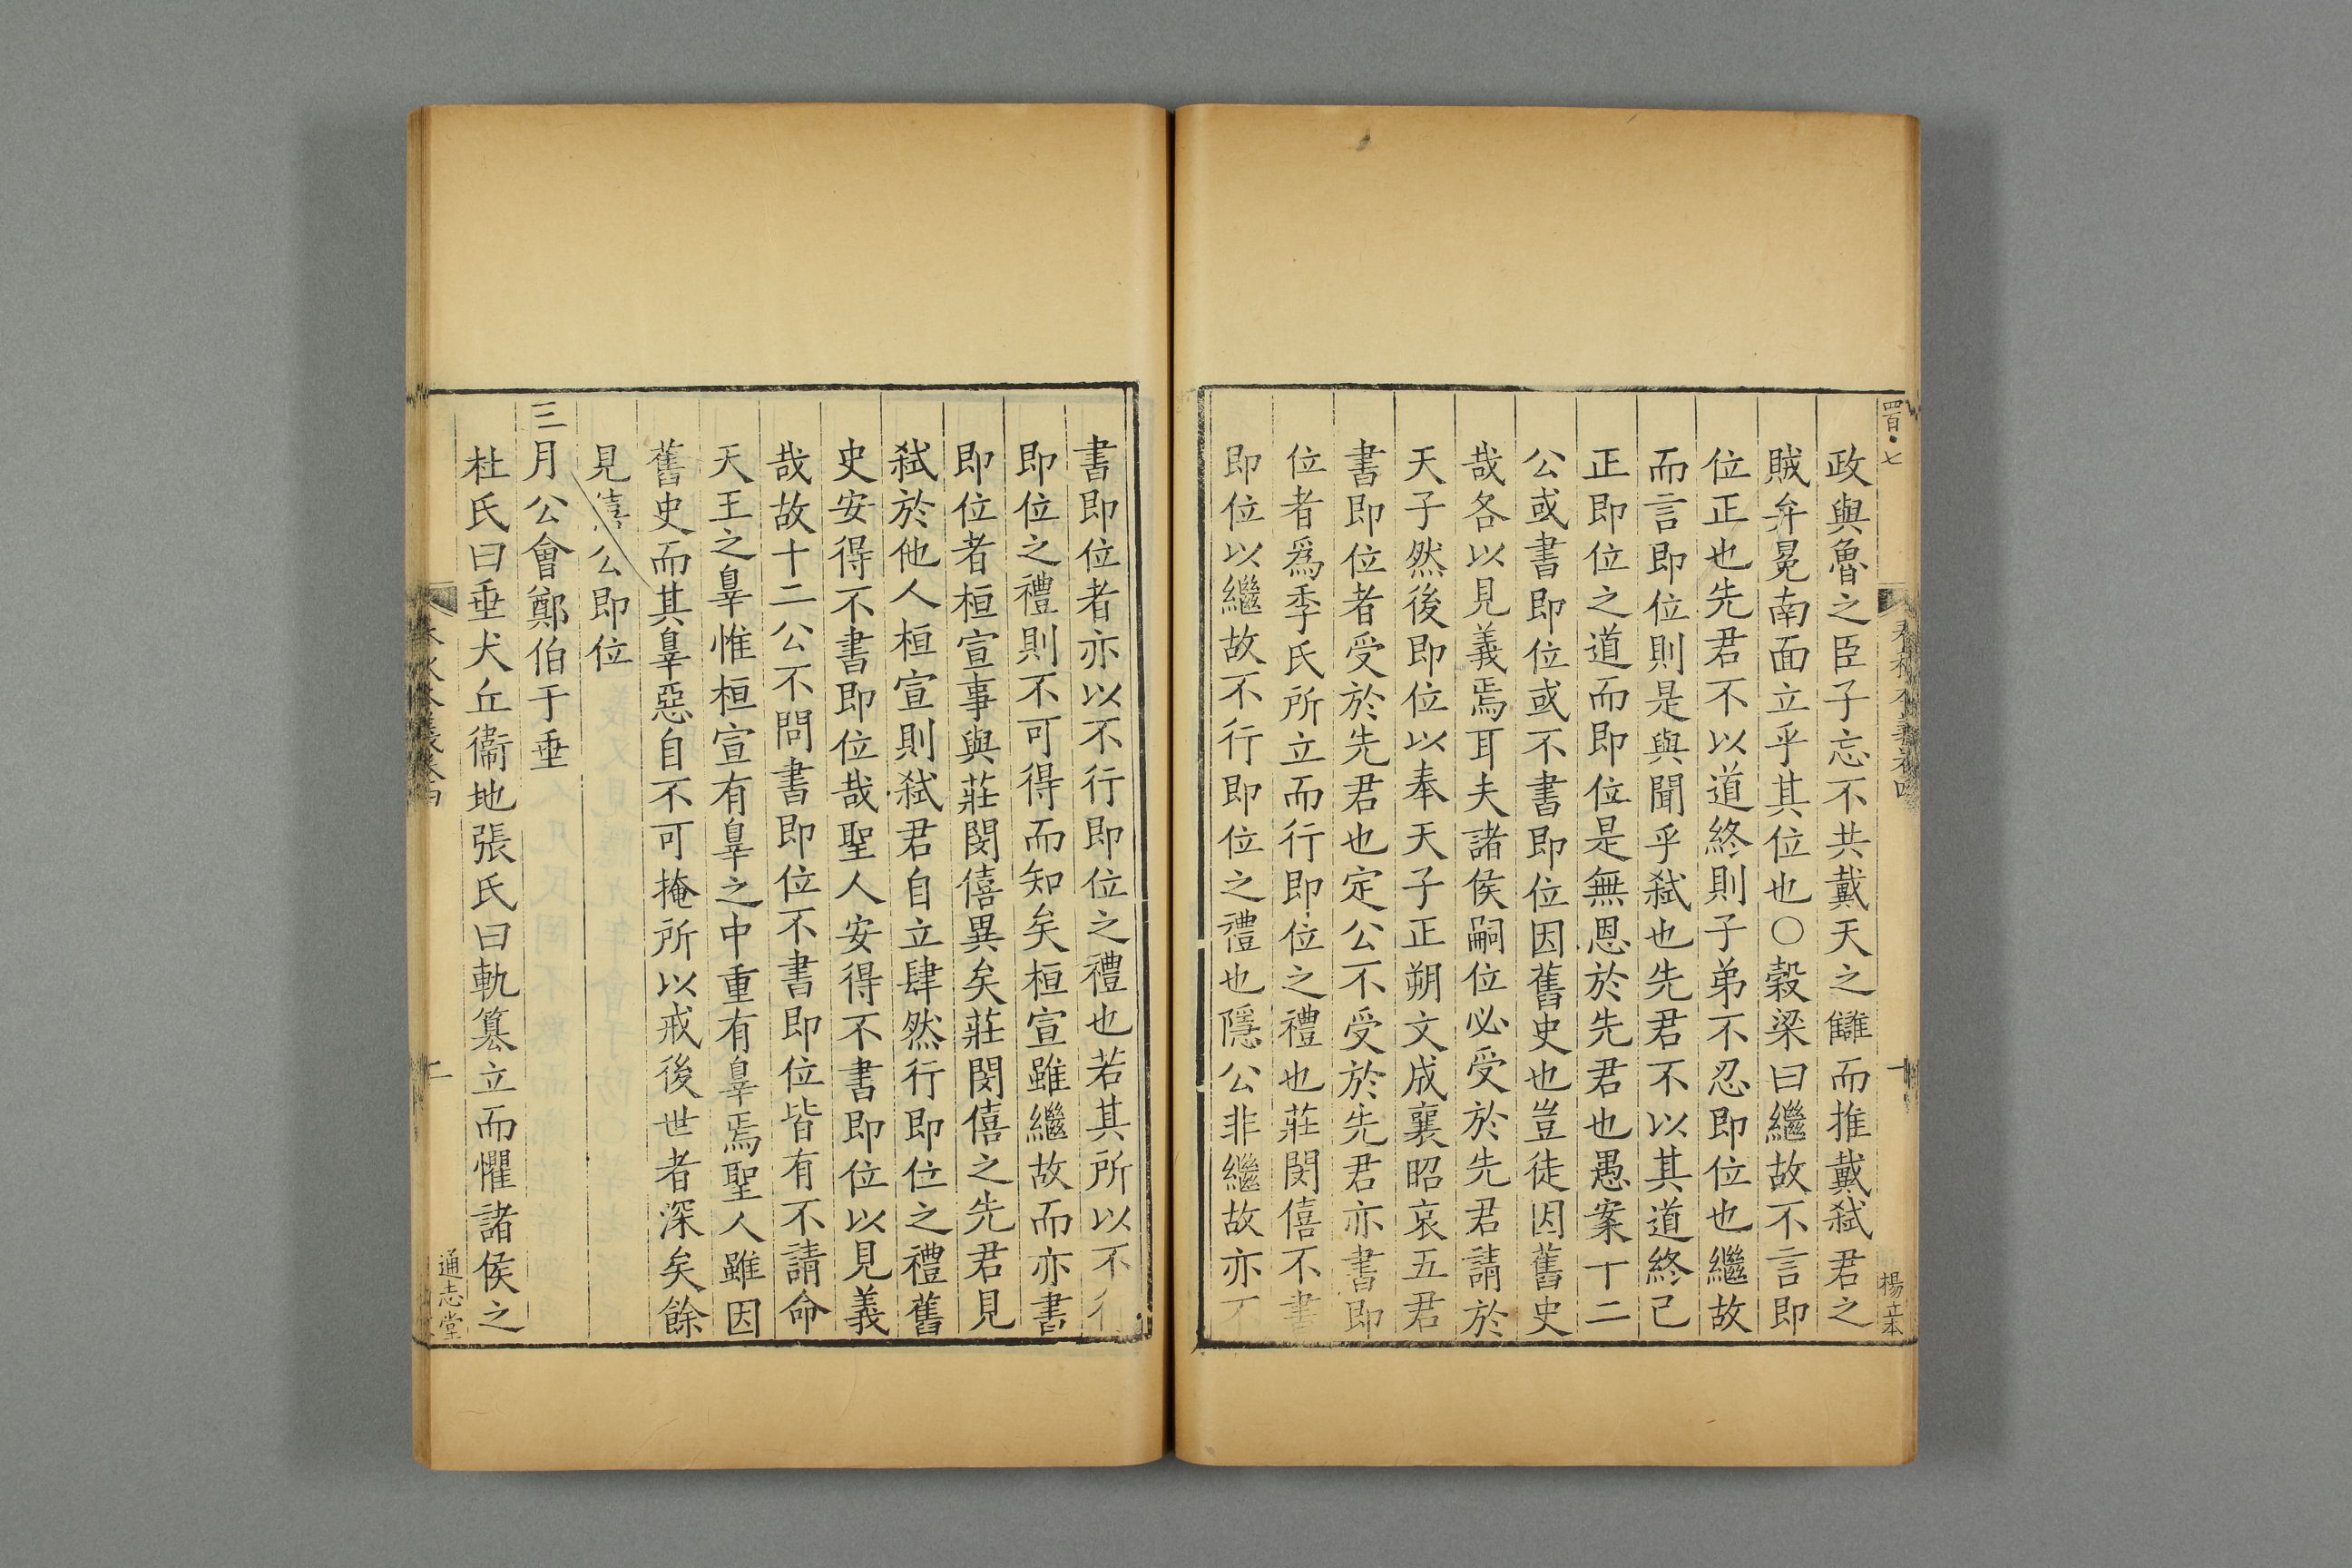 四百七
楊立本
政與魯之臣子忘不共戴天之讎而推戴弒君之
賊弁冕南面立乎其位也〇榖梁曰繼故不言即
位正也先君不以道終則子弟不忍即位也繼故
而言即位則是與聞乎弒也先君不以其道終己
正即位之道而即位是無恩於先君也愚案十二
公或書即位或不書即位因舊史也豈徒因舊史
哉各以見義焉耳夫諸侯嗣位必受於先君請於
天子然後即位以奉天子正朔文成襄昭哀五君
書即位者受於先君也定公不受於先君亦書即
位者爲季氏所立而行即位之禮也莊閔僖不書
即位以繼故不行即位之禮也隱公非繼故亦不
書即位者亦以不行即位之禮也若其所以不行
即位之禮則不可得而知矣桓宣雖繼故而亦書
即位者桓宣事與莊閔僖異矣莊閔僖之先君見
弒於他人桓宣則弒君自立肆然行即位之禮舊
史安得不書即位哉聖人安得不書即位以見義
哉故十二公不問書即位不書即位皆有不請命
天王之辠惟桓宣有辠之中重有辠焉聖人雖因
舊史而其辠惡自不可掩所以戒後世者深矣餘
見公即位
三月公會鄭伯于垂
杜氏曰垂犬丘衞地張氏曰軌篡立而懼諸侯之
二
通志堂